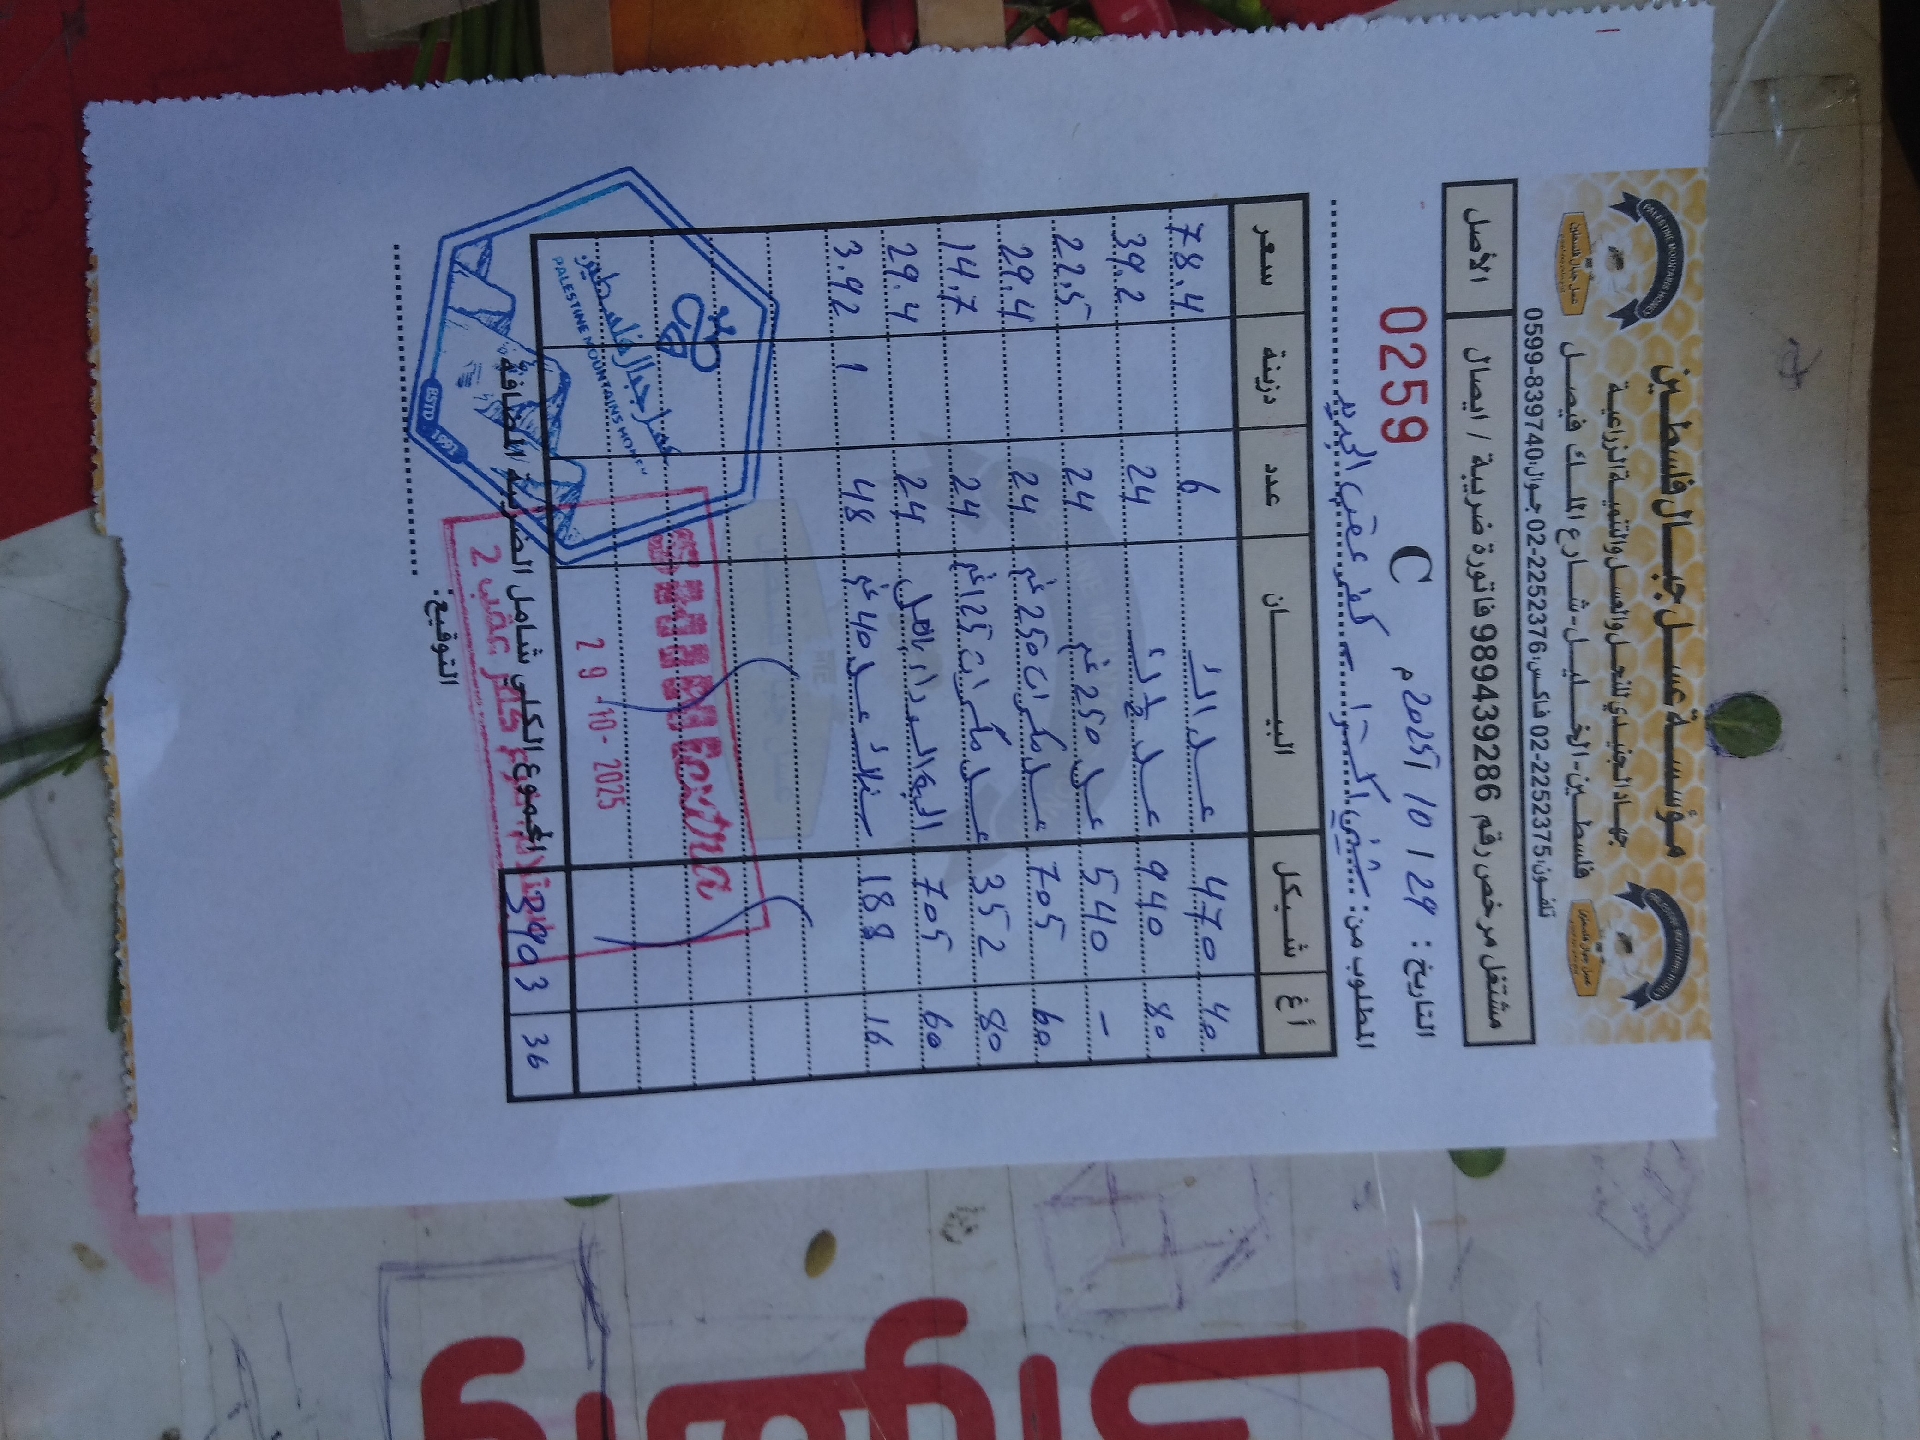 مؤسسة عسل جبال فلسطين
جهاد الجنيدي للنحل والعسل والتنمية الزراعية
فلسطين - الخليل - شارع الملك فيصل
تلفون: 02-2252375 فاكس: 02-2252376 جوال: 0599-839740
PALESTINE MOUNTAINS HONEY
عسل جبال فلسطين
مشتغل مرخص رقم 989439286 فاتورة ضريبة / ايصال الأصل
التاريخ: 29 / 10 / 2025م C 0259
المطلوب من: كفر عقب الجديد
أغ شيكل البيــــان عدد دزينة سعر
40 470 عسل 6 78.4
80 940 عسل 24 39.2
- 540 عسل 250 غم 24 22.5
60 705 عسل مكسرات 250 غم 24 29.4
80 352 عسل مكسرات 125 غم 24 14.7
60 705 24 29.4
16 188 عسل 40 غم 48 1 3.92
36 3903 المجموع الكلي شامل الضريبة المضافة
Extra
29-10-2025
كفر عقب 2
عسل جبال فلسطين
PALESTINE MOUNTAINS HONEY
ESTD 1997
التوقيع: